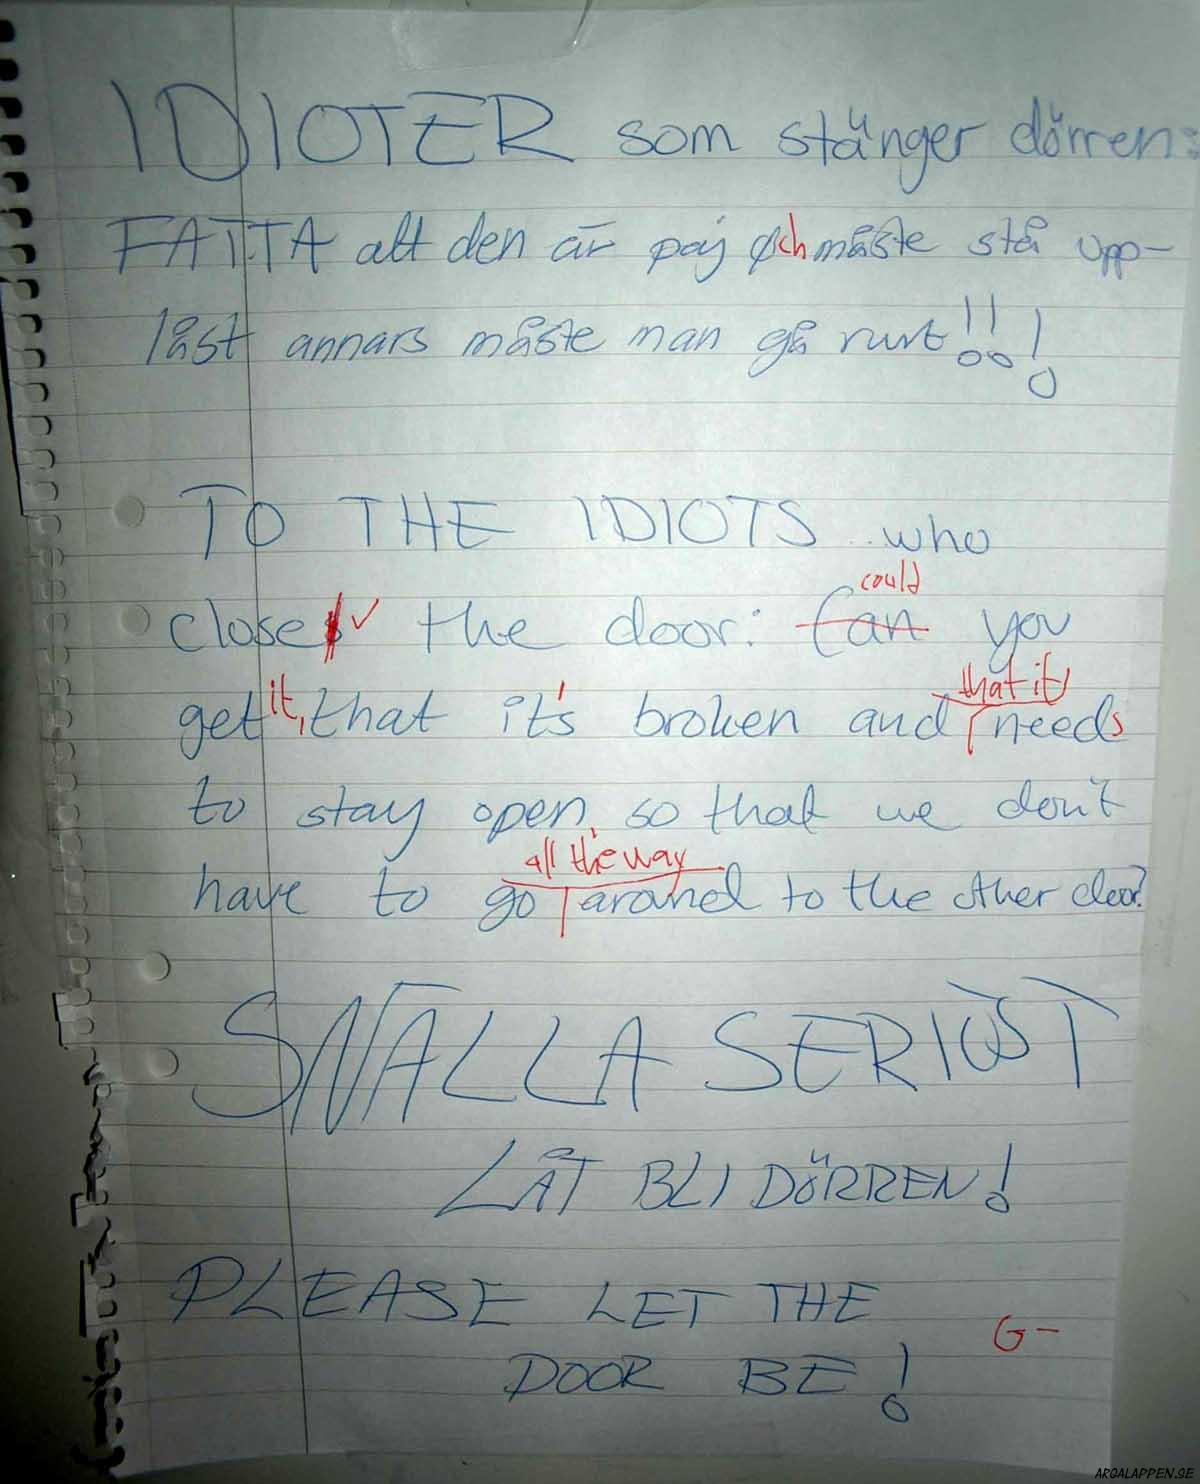 IDIOTER som stänger dörren:
FATTA att den är paj och måste stå upp-
låst annars måste man gå runt!!!
TO THE IDIOTS who
could
closes ✓ the door: Can you
it, that it
get that it's broken and needs
to stay open, so that we don't
all the way
have to go around to the other door?
SNÄLLA SERIÖST
LÅT BLI DÖRREN!
PLEASE LET THE
G-
DOOR BE!
ARGALAPPEN.SE